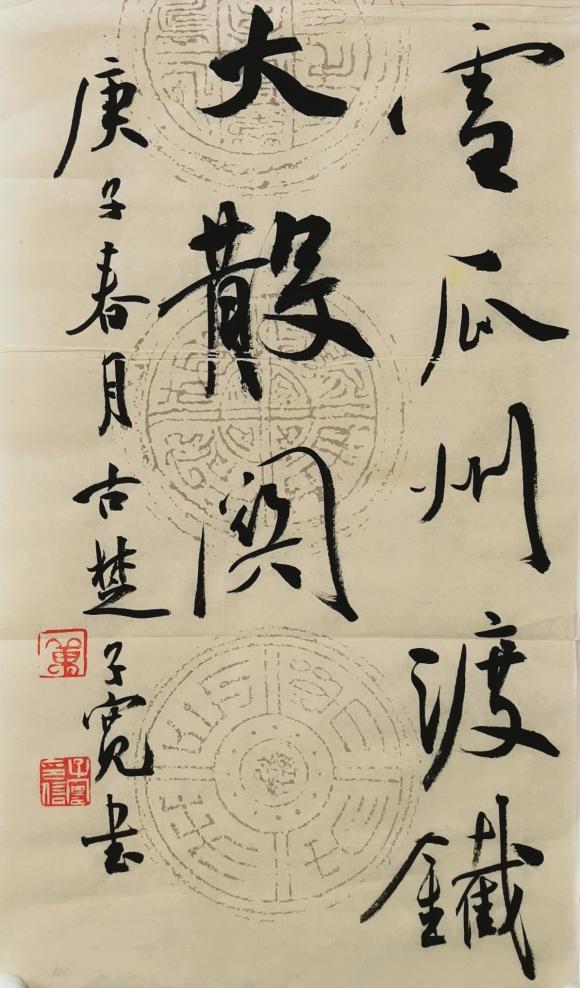 雪瓜州渡鐵
大散関
庚子春月古楚子寬书